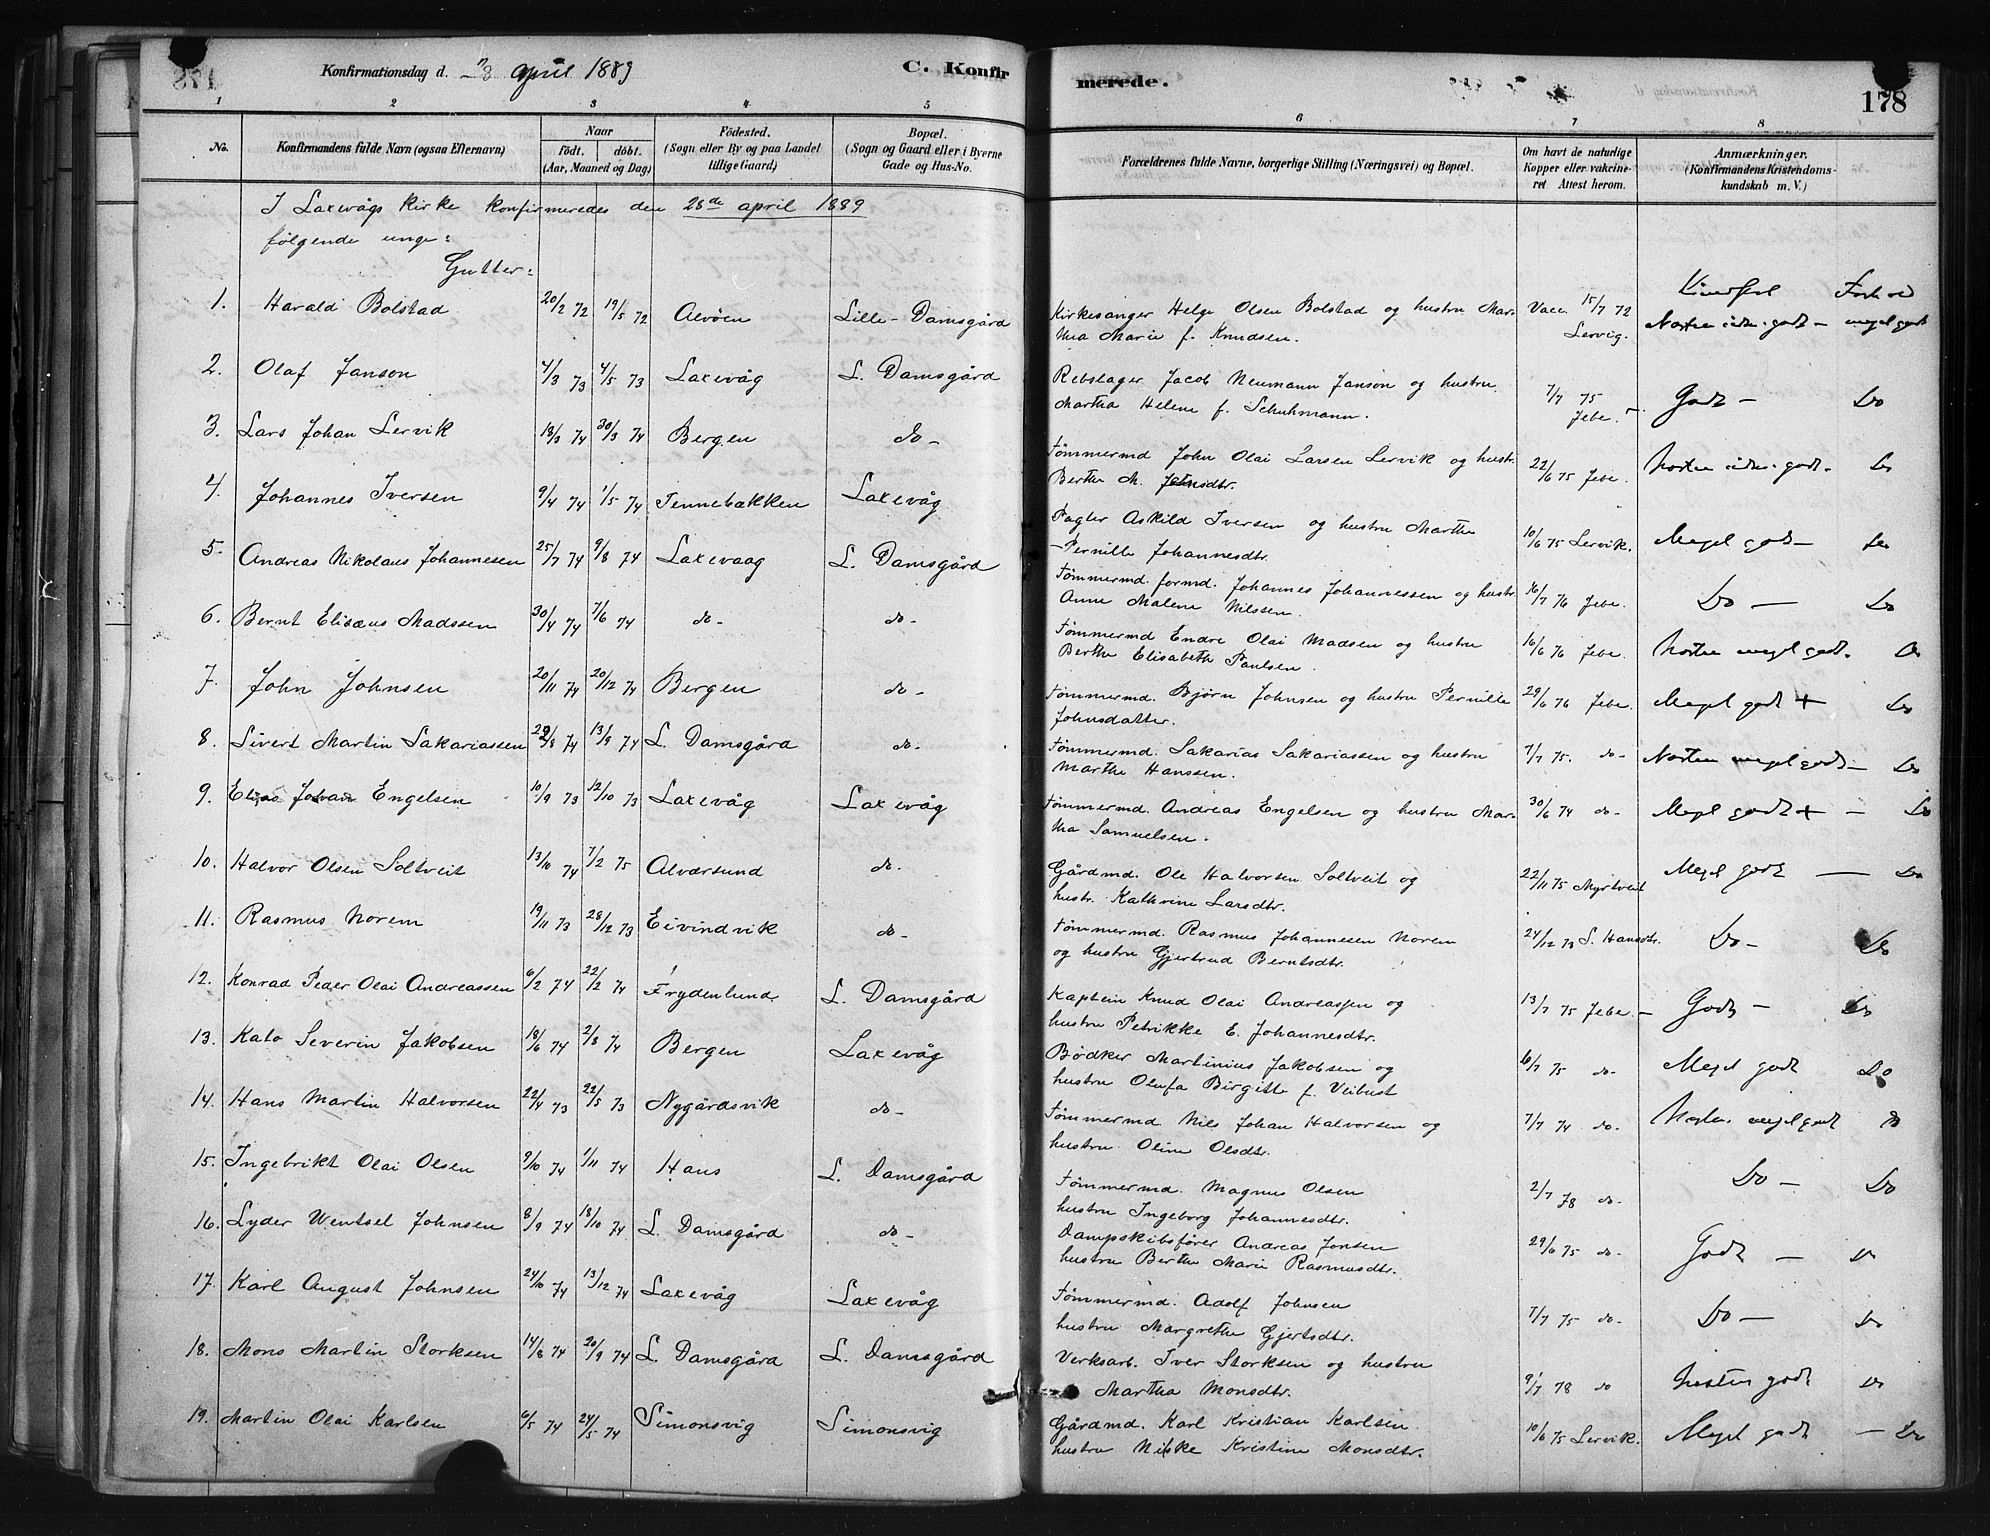 Konfirmationsdag d. april 1889 C. Konfir merede. 178
1 2 3 4 5 6 7 8
No. Konfirmandens fulde Navn (ogsaa Efternavn)
Naar födt. döbt. (Aar, Maaned og Dag)
Födested. (Sogn eller By og paa Landet tillige Gaard)
Bopæl. (Sogn og Gaard eller i Byerne Gade og Hus-No.
Forældrenes fulde Navne, borgerlige Stilling (Næringsvei) og Bopæl.
Om havt de naturlige Kopper eller vakcineret Attest herom.
Anmærkninger. (Konfirmandens Kristendomskundskab m. V.)
I Laxevågs Kirke konfirmeredes den 28de april 1889
følgende unge:
Gutter:
Forhold
1. Harald Bolstad 20/2 72 19/5 72 Alvöen Lille-Damsgård Kirkesanger Helge Olsen Bolstad og hustru Mar-
tha Marie f. Knudsen. Vacc. 15/7 72 Lervig. Næsten meget godt
2. Olaf Janson 4/3 73 4/5 73 Laxevåg L. Damsgård Rebslager Jacob Neumann Janson og hustru
Martha Helene f. Schuhmann. 7/7 75 Jebe. Godt - Do
3. Lars Johan Lervik 18/3 74 30/3 74 Bergen do- Tømmermd John Olai Larsen Lervik og hustr.
Berthe M. Johnsdtr. 22/6 75 Jebe. godt. Do
4. Johannes Iversen 9/4 74 1/5 74 Tennebækken Laxevåg Fagler Askild Iversen og hustru Marthe
-Pernille Johannesdtr. 10/6 75 Lervik. Meget godt Do
5. Andreas Nikolaus Johannesen 25/7 74 9/8 74 Laxevaag L. Damsgård Tømmermd. formd. Johannes Johannessen og hustr.
Anne Malene Nilssen. 16/7 76 Jebe. Do - Do
6. Bernt Elisæus Madssen 30/4 74 7/6 74 do- do- Tømmermd Endre Olai Madsen og hustru
Berthe Elisabeth Paulsen. 16/6 76 Jebe. Næsten meget godt. Do
7. John Johnsen 20/11 74 20/12 74 Bergen do- Tømmermd. Bjørn Johnsen og hustru Pernille
Johnsdatter. 29/6 76 Jebe. Meget godt + Do
8. Sivert Martin Sakariassen 29/8 74 13/9 74 L. Damsgård do- Tømmermd. Sakarias Sakariassen og hustru
Marthe Hanssen. 7/7 75. do- Næsten meget godt - Do
9. Elias Johan Engelsen 10/9 73 12/10 73 Laxevåg Laxevåg Tømmermd. Andreas Engelsen og hustru Mar-
tha Samuelsen. 30/6 74 do- Meget godt + - Do
10. Halvor Olsen Soltveit 13/10 74 7/2 75 Alværsund do. Gårdmd. Ole Halvorsen Soltveit og
hustr. Kathrine Larsdtr. 22/11 75 Myrtveit Meget godt - Do
11. Rasmus Norem 19/11 73 28/12 73 Eivindvik do- Tømmermd. Rasmus Johannesen Norem
og hustru Gjertrud Berntsdtr. 24/12 73 S. Hansdtr. Do- Do
12. Konrad Peder Olai Andreassen 6/2 74 22/2 74 Frydenlund L. Damsgård Kaptein Knud Olai Andreassen og
hustru Petrikke E. Johannesdtr. 13/7 75 Jebe - Godt - Do
13. Kato Severin Jakobsen 18/6 74 2/8 74 Bergen Laxevåg Bødker Martinius Jakobsen og
hustru Olufa Birgitte f. Veibust 6/7 75 do- Meget godt Do
14. Hans Martin Halvorsen 22/4 73 22/5 73 Nygårdsvik do- Tømmermd Nils Johan Halvorsen og
hustru Oline Olsdtr. 7/7 74 do. meget godt Do
15. Ingebrikt Olai Olsen 9/10 74 1/11 74 Haus L. Damsgård Tømmermd. Magnus Olsen
hustru Ingeborg Johannesdtr. 2/7 78 do- Do - Do
16. Lyder Wentsel Johnsen 8/9 74 18/10 74 L. Damsgård do- Dampskibsfører Andreas Jonsen
hustru Berthe Marie Rasmusdtr. 29/6 75 do- Godt - Do
17. Karl August Johnsen 24/10 74 13/12 74 Laxevåg Laxevåg Tømmermd. Adolf Johnsen
hustru Margrethe Gjertsdtr. 7/7 75 do- Do - Do
18. Mons Martin Storksen 14/8 74 20/9 74 L. Damsgård L. Damsgård Verksarb. Iver Storksen og hustru
Martha Monsdtr. 9/7 78 do Næsten godt Do
19. Martin Olai Karlsen 6/5 74 24/5 74 Simonsvig Simonsvig Gårdmd. Karl Kristian Karlsen
hustru Kristine Monsdtr. 10/6 75 Lervik. Meget godt - Do